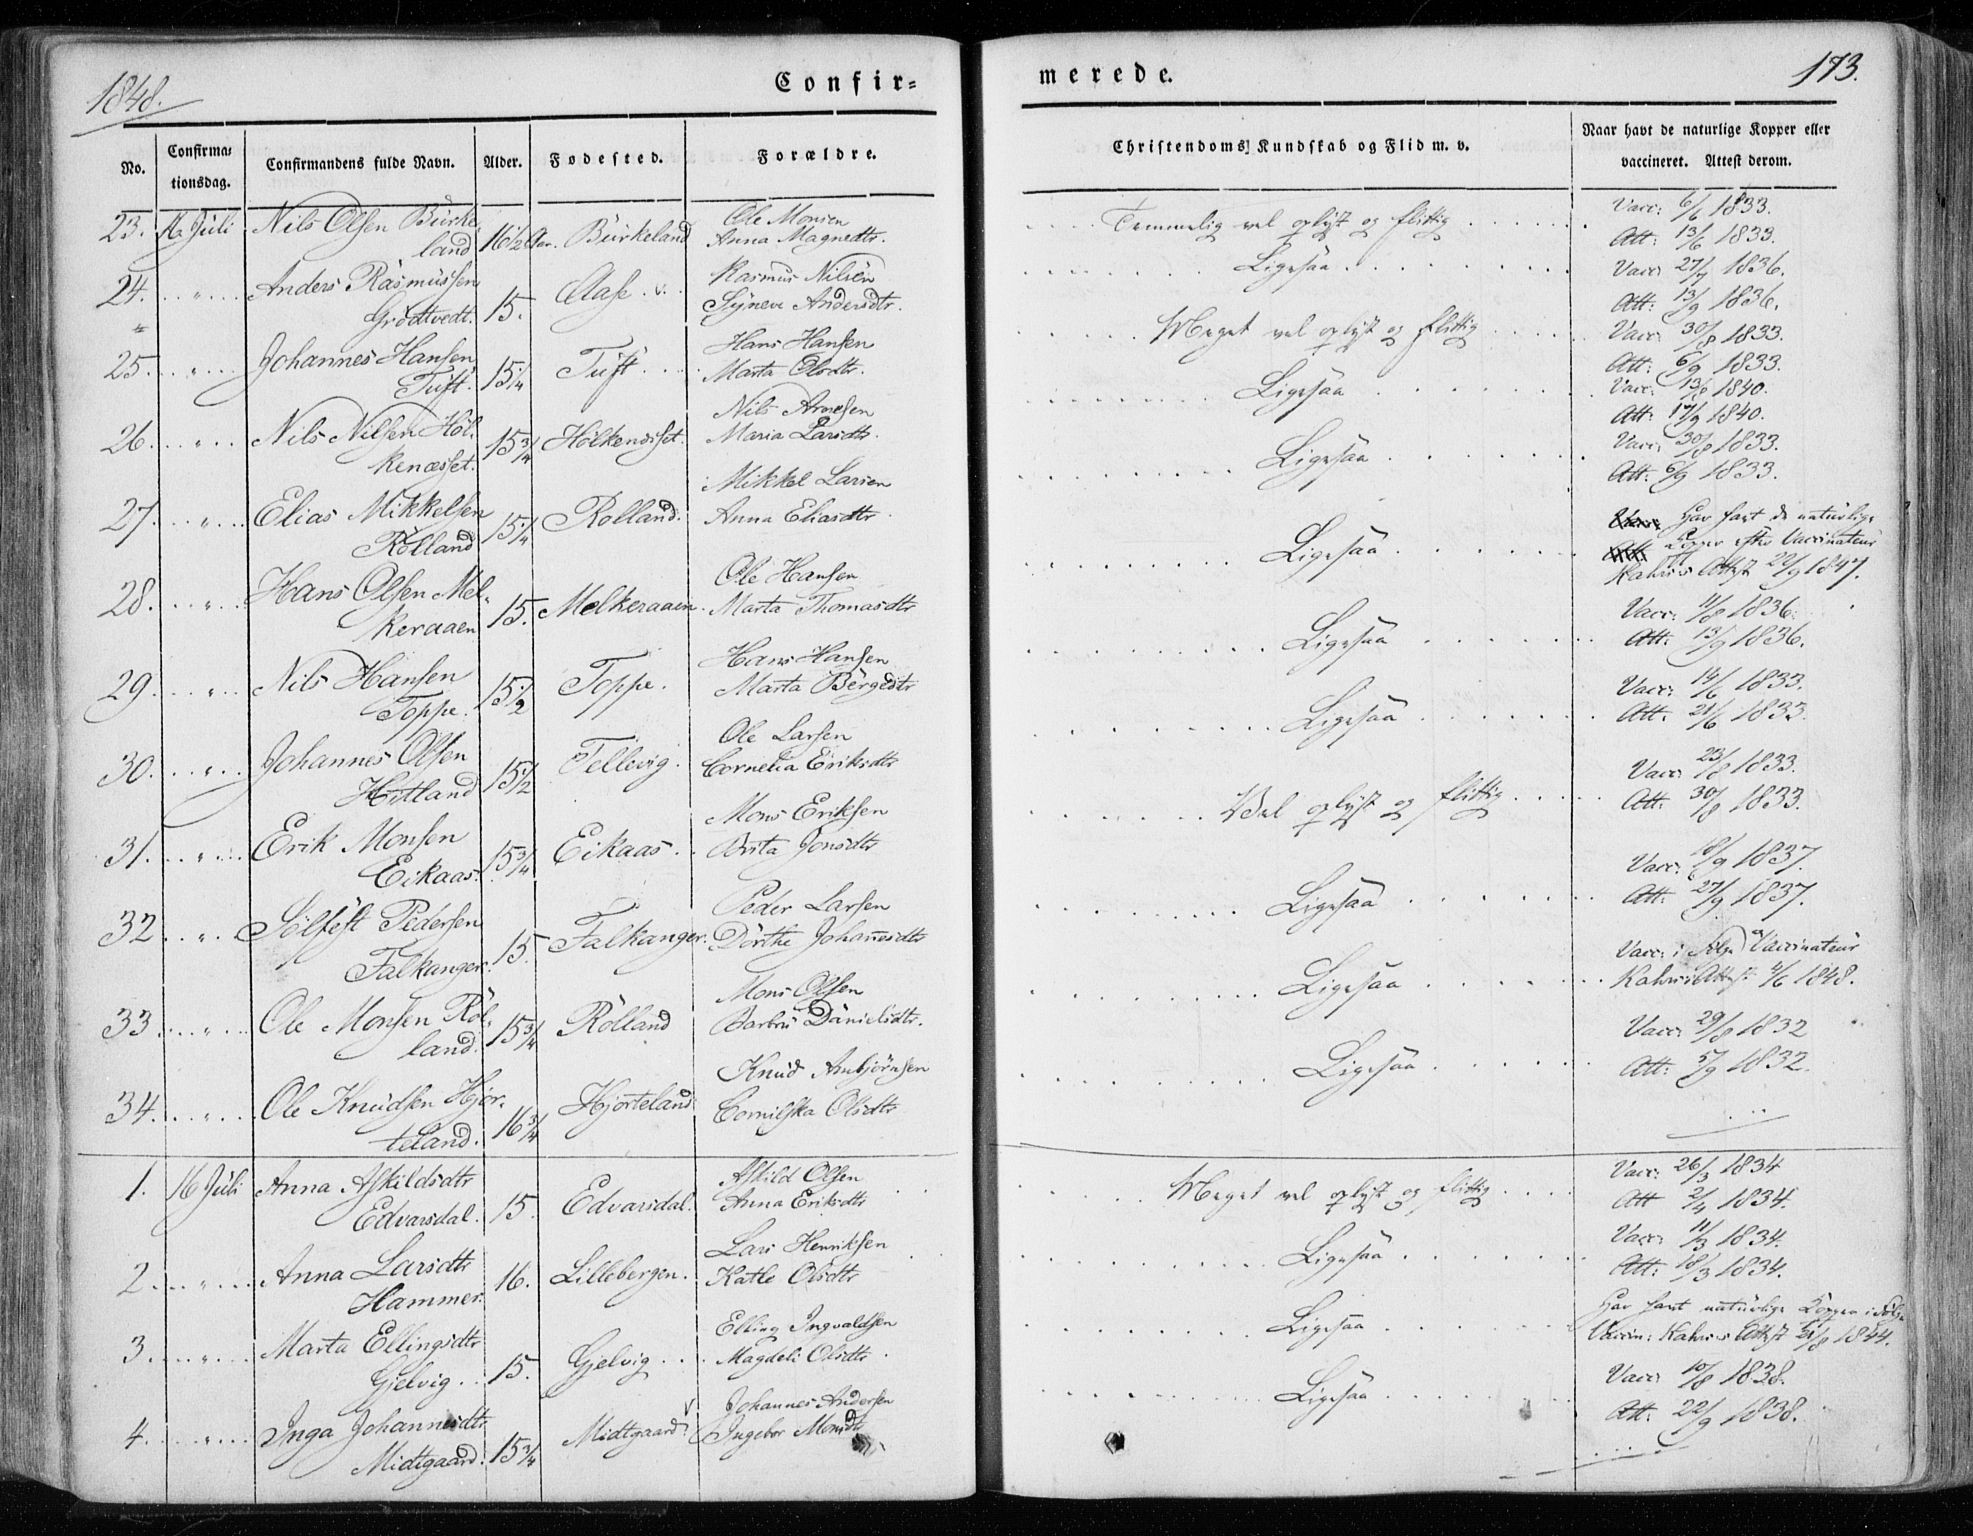 1848.
Confir-
merede.
173.
No.
Confirma-
tionsdag.
Confirmandens fulde Navn.
Alder.
Fødested.
Forældre.
Christendoms Kundskab og Flid m. v.
Naar havt de naturlige Kopper eller
vaccineret. Attest derom.
23. 16 Juli Nils Olsen Birke-
land 16 1/2 Aar. Birkeland
Ole Monsen
Anna Magnedtr.
Temmelig vel oplyst og flittig
Vacc: 6/6 1833.
Att: 13/6 1833.
24. " Anders Rasmussen
Grödtvedt. 15. Aase
Rasmus Nilsen
Synneve Andersdtr.
Ligesaa
Vacc: 27/7 1836.
Att: 13/9 1836.
25. " Johannes Hansen
Tuft. 15 1/4 Tuft
Hans Hansen
Marta Olsdtr.
Meget vel oplyst og flittig
Vacc: 30/8 1833.
Att: 6/9 1833.
26. " Nils Nilsen Hol-
kenæsset. 15 3/4 Holkenæsset.
Nils Arnesen
Maria Larsdtr.
Ligesaa
Vacc: 13/8 1840.
Att: 17/9 1840.
27. " Elias Mikkelsen
Rolland 15 1/4 Rolland.
Mikkel Larsen
Anna Eliasdtr
Ligesaa
Vacc: 30/8 1833.
Att: 6/9 1833.
28. " Hans Olsen Mel-
keraaen 15. Melkeraaen.
Ole Hansen
Marta Thomasdtr
Ligesaa
Har havt de naturlige
Kopper efter Vaccinateur
Kahrs's Attest 22/9 1847.
29. " Nils Hansen
Toppe. 15 1/2 Toppe.
Hans Hansen
Marta Børgedtr
Ligesaa
Vacc: 11/8 1836.
Att: 13/9 1836.
30. " Johannes Olsen
Hitland 15 1/2 Tellevig.
Ole Larsen
Cornelia Eriksdtr
Ligesaa
Vacc: 14/6 1833.
Att: 21/6 1833.
31. " Erik Monsen
Eikaas. 15 3/4 Eikaas.
Mons Eriksen
Brita Jonsdtr
Vel oplyst og flittig
Vacc: 23/8 1833.
Att: 30/8 1833.
32 " Sølfest Pedersen
Falkanger. 15. Falkanger.
Peder Larsen
Dorthe Johannesdtr
Ligesaa
Vacc: 18/9 1837.
Att: 27/9 1837.
33 " Ole Monsen Rol-
land. 15 3/4 Rolland
Mons Olsen
Barbro Danielsdtr.
Ligesaa
Vacc: i Følge Vaccinateur
Kahrs's Attest 4/6 1848.
34. " Ole Knudsen Hjor-
teland. 16 3/4 Hjorteland
Knud Anbjørnsen
Olsdtr
Ligesaa
Vacc: 29/8 1832
Att: 5/9 1832.
1. 16 Juli Anna Askildsdtr
Edvarsdal. 15. Edvarsdal.
Askild Olsen
Anna Eriksdtr
Meget vel oplyst og flittig
Vacc: 26/3 1834
Att 2/4 1834.
2. " Anna Larsdtr
Hammer. 16. Lillebergen.
Lars Henriksen
Katle Olsdtr
Ligesaa
Vacc: 11/3 1834.
Att: 18/3 1834.
3. " Marta Ellingsdtr
Gjelvig. 15. Gjelvig
Elling Ingvaldsen
Magdeli Olsdtr
Ligesaa
Har havt naturlige Kopper i Følge
Vaccin: Kahrs's Attest 21/8 1844.
4. " Inga Johannesdtr
Midtgaard. 15 3/4 Midtgaard
Johannes Andersen
Ingebor Monsdtr
Ligesaa
Vacc: 10/8 1838.
Att: 22/9 1838.